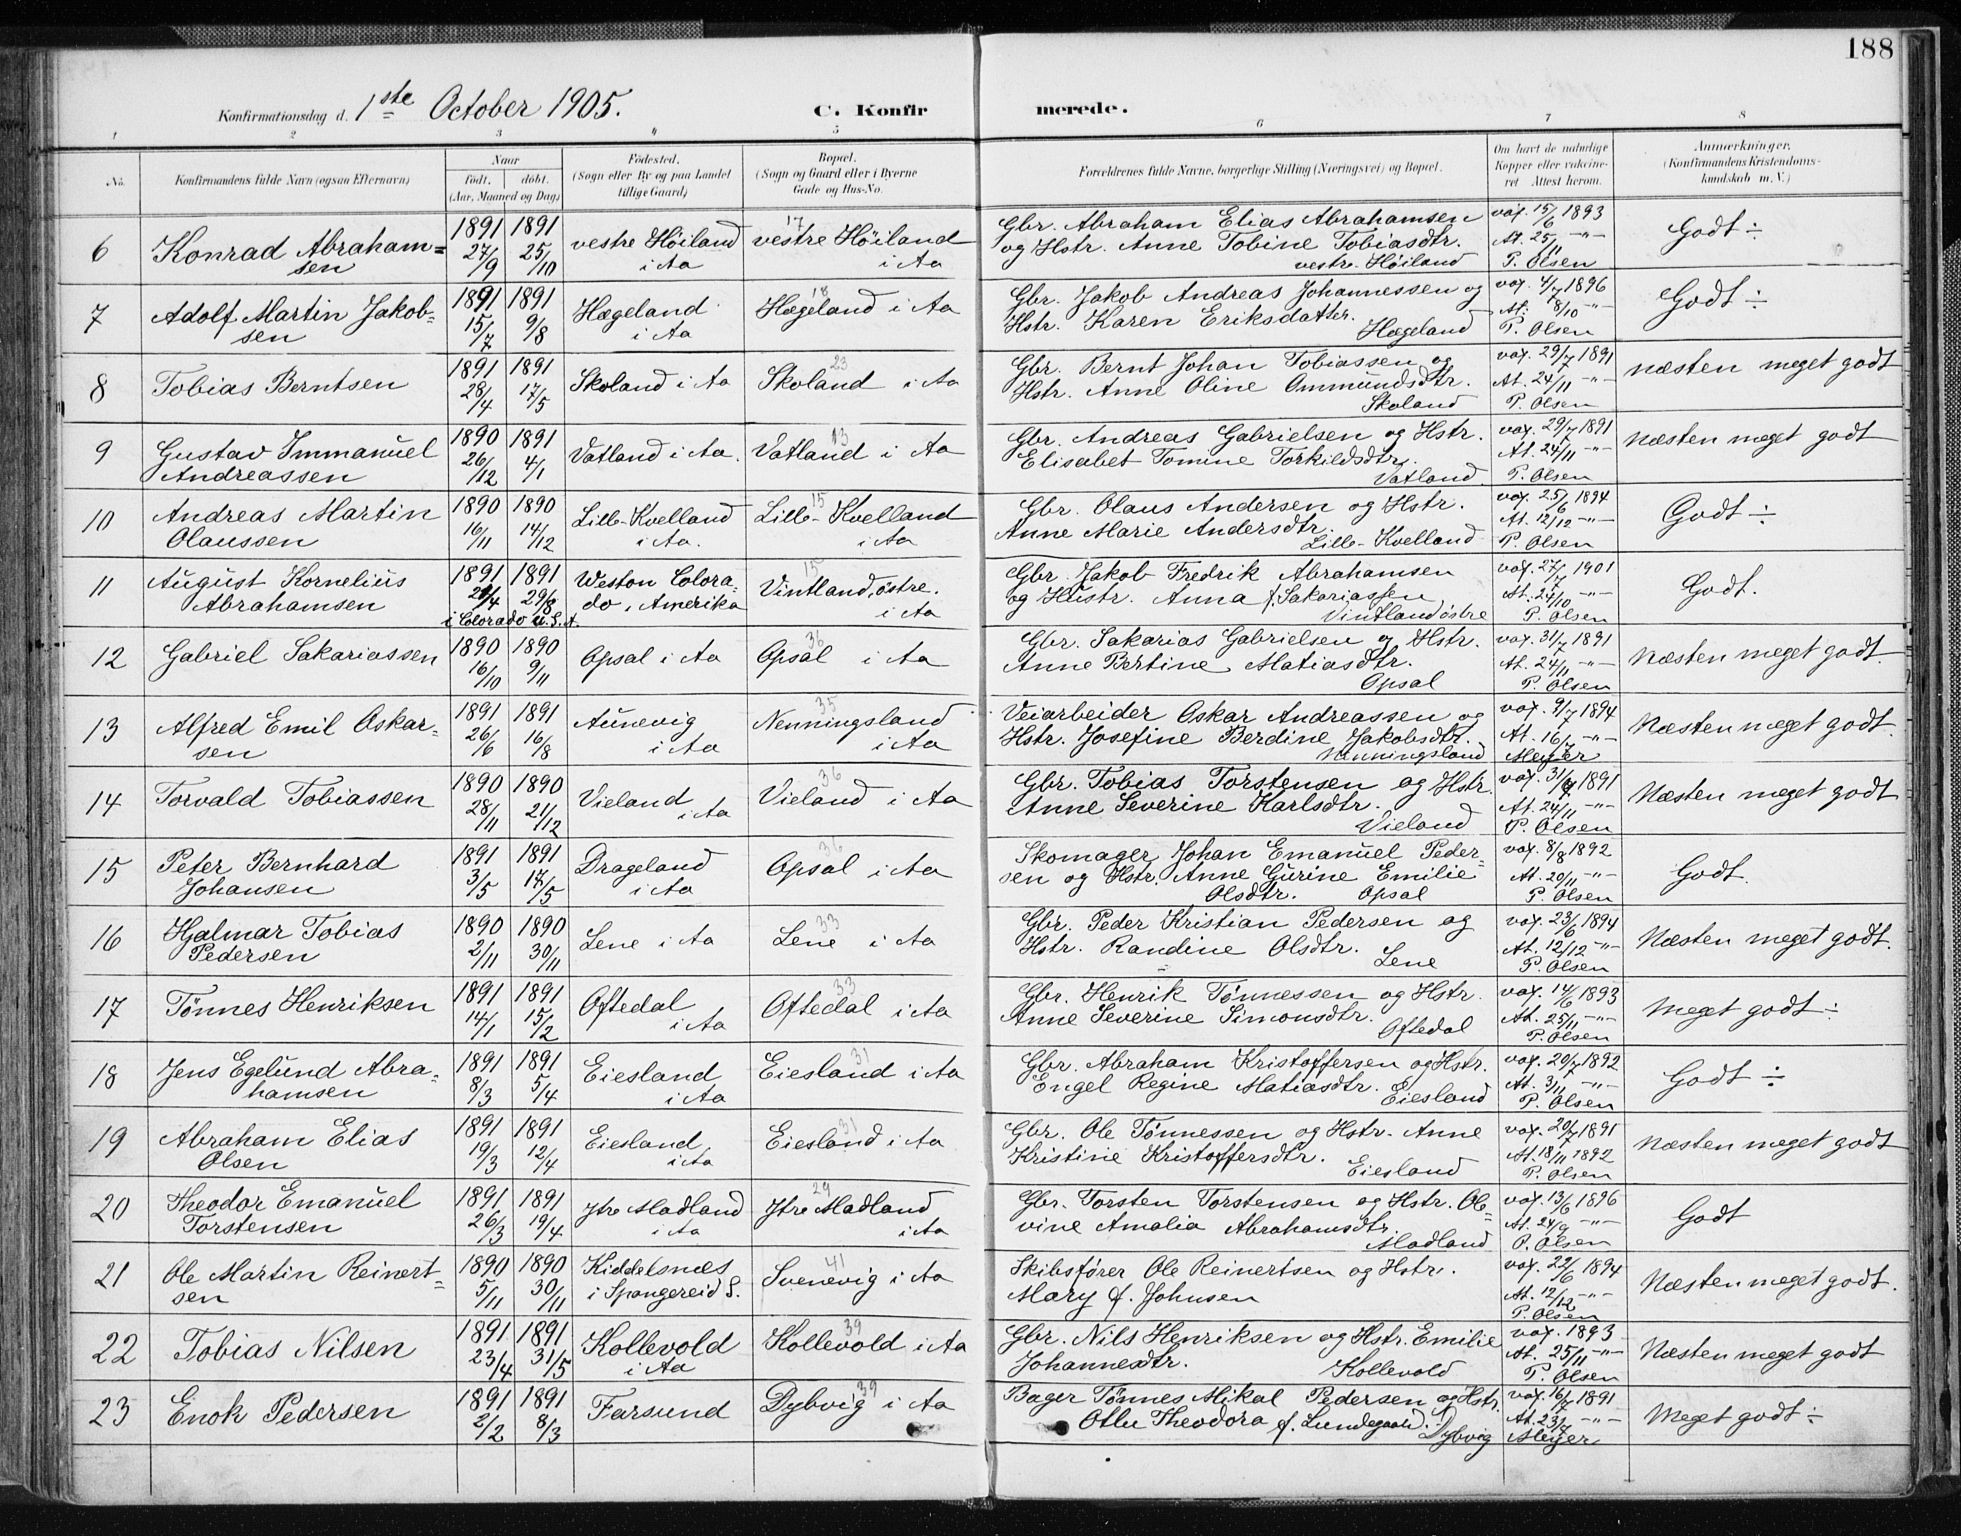 188
Konfirmationsdag d. 1ste October 1905. C. Konfirmerede.
1 2 3 4 5 6 7 8
No. Konfirmandens fulde Navn (ogsaa Efternavn) Naar født. døbt. (Aar, Maaned og Dag) Fødested. (Sogn eller By og paa Landet tillige Gaard) Bopæl. (Sogn og Gaard eller i Byerne Gade og Hus-No. Forældrenes fulde Navne, borgerlige Stilling (Næringsvei) og Bopæl. Om havt de naturlige Kopper eller vakcineret Attest herom. Anmærkninger. (Konfirmandens Kristendomskundskab m. V.)
6 Konrad Abrahamsen 1891 27/9 1891 25/10 vestre Höiland i Aa 17 vestre Höiland i Aa Gbr. Abraham Elias Abrahamsen og Hstr. Anne Tobine Tobiasdtr. vestre Höiland vax. 15/6 1893 At. 25/11 -"- P. Olsen Godt ÷
7 Adolf Martin Jakobsen 1891 15/7 1891 9/8 Hægeland i Aa 18 Hægeland i Aa Gbr. Jakob Andreas Johannessen og Hstr. Karen Eriksdatter. Hægeland vax. 4/7 1896 At. 8/10 -"- P. Olsen Godt ÷
8 Tobias Berntsen 1891 28/4 1891 17/5 Skoland i Aa 23 Skoland i Aa Gbr. Bernt Johan Tobiassen og Hstr. Anne Oline Ommundsdtr. Skoland vax. 29/7 1891 At. 24/11 -"- P. Olsen næsten meget godt
9 Gustav Immanuel Andreassen 1890 26/12 1891 4/1 Vatland i Aa. 13 Vatland i Aa Gbr. Andreas Gabrielsen og Hstr. Elisabet Tomine Torkildsdtr. Vatland vax. 29/7 1891 At. 24/11 -"- P. Olsen Næsten meget godt
10 Andreas Martin Olaussen 1890 16/11 1890 14/12 Lille-Kvelland i Aa. 15 Lille-Kvelland i Aa Gbr. Olaus Andersen og Hstr. Anne Marie Andersdtr. Lille-Kvelland vax. 25/6 1894 At. 12/12 -"- P. Olsen Godt ÷
11 August Kornelius Abrahamsen 1891 1891 29/8 i Colorado U.S.A. Weston Colorado, Amerika 15 Vintland, östre. i Aa Gbr. Jakob Fredrik Abrahamsen og Hustr. Anna f. Sakariassen Vintland östre vax. 27/7 1901 At. 24/10 -"- P. Olsen Godt.
12 Gabriel Sakariassen 1890 16/10 1890 9/11 Opsal i Aa 36 Opsal i Aa Gbr. Sakarias Gabrielsen og Hstr. Anne Bertine Matiasdtr. Opsal vax. 31/7 1891 At. 24/11 -"- P. Olsen Næsten meget godt.
13 Alfred Emil Oskarsen 1891 26/6 1891 16/8 Aunevig i Aa 35 Nenningsland i Aa Veiarbeider Oskar Andreassen og Hstr. Josefine Berdine Jakobsdtr. Nenningsland vax. 9/7 1894 At. 16/7 -"- Meyer Næsten meget godt.
14 Torvald Tobiassen 1890 28/11 1890 21/12 Vieland i Aa 36 Vieland i Aa Gbr. Tobias Torstensen og Hstr. Anne Severine Karlsdtr. Vieland vax. 31/7 1891 At. 24/11 -"- P. Olsen Næsten meget godt
15 Peter Bernhard Johansen 1891 3/5 1891 17/5 Drageland i Aa 36 Opsal i Aa Skomager Johan Emanuel Pedersen og Hstr. Anne Gurine Emilie Olsdtr. Opsal vax. 8/8 1892 At. 20/11 -"- P. Olsen Godt.
16 Hjalmar Tobias Pedersen 1890 2/11 1890 30/11 Lene i Aa 33 Lene i Aa Gbr. Peder Kristian Pedersen og Hstr. Randine Olsdtr. Lene vax. 23/6 1894 At. 12/12 -"- P. Olsen Næsten meget godt.
17 Tönnes Henriksen 1891 14/1 1891 15/2 Oftedal i Aa 33 Oftedal i Aa Gbr. Henrik Tönnessen og Hstr. Anne Severine Simonsdtr. Oftedal vax. 14/6 1893 At. 25/11 -"- P. Olsen Meget godt ÷
18 Jens Egelund Abrahamsen 1891 8/3 1891 5/4 Eiesland i Aa 31 Eiesland i Aa Gbr. Abraham Kristoffersen og Hstr. Engel Regine Matiasdtr. Eiesland vax. 20/7 1892 At. 3/11 -"- P. Olsen Godt ÷
19 Abraham Elias Olsen 1891 19/3 1891 12/4 Eiesland i Aa 31 Eiesland i Aa Gbr. Ole Tönnessen og Hstr. Anne Kristine Kristoffersdtr. Eiesland vax. 20/7 1891 At. 18/11 1892 P. Olsen Næsten meget godt
20 Theodor Emanuel Torstensen 1891 26/3 1891 19/4 Ytre Madland i Aa 29 Ytre Madland i Aa Gbr. Torsten Torstensen og Hstr. Olevine Amalia Abrahamsdtr. Madland vax. 13/6 1896 At. 24/9 -"- P. Olsen Godt
21 Ole Martin Reinertsen 1890 5/11 1890 30/11 Kiddelsnæs i Spangereid S. 41 Svenevig i Aa Skibsförer Ole Reinertsen og Hstr. Mary f. Johnsen vax. 22/6 1894 At. 12/12 -"- P. Olsen Næsten meget godt.
22 Tobias Nilsen 1891 23/4 1891 31/5 Kollevold i Aa 39 Kollevold i Aa Gbr. Nils Henriksen og Hstr. Emilie Johannesdtr. Kollevold vax. 1893 At. 25/11 -"- P. Olsen Næsten meget godt
23 Enok Pedersen 1891 2/2 1891 8/3 Farsund 39 Dybvig i Aa Bager Tönnes Mikal Pedersen og Hstr. Theodora f. Lundegaard. Dybvig vax. 16/7 1891 At. 23/7 -"- Meyer Meget godt ÷